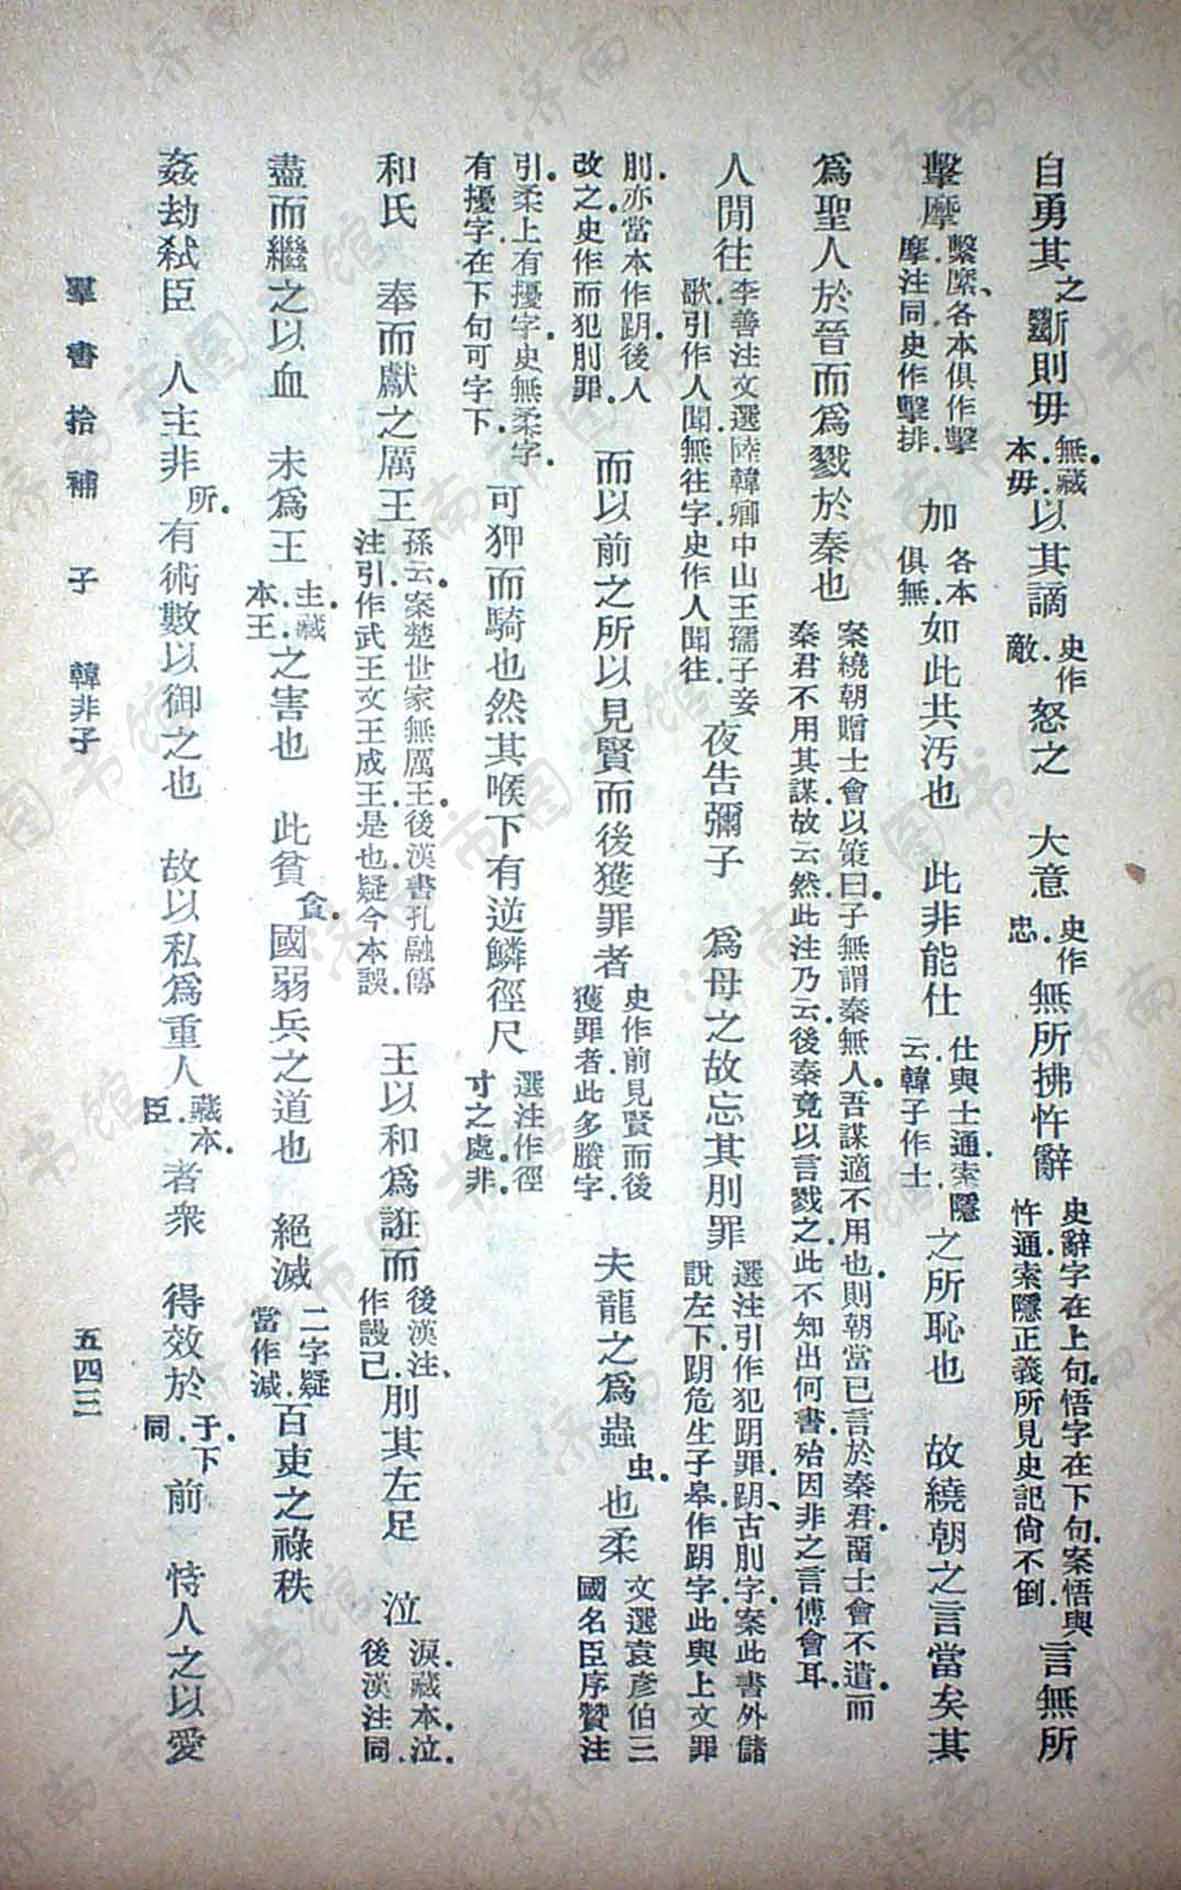 自勇其之斷則毋無．藏本．毋．以其謫史作敵．怒之　大意史作忠．無所拂忤辭史辭字在上句．悟字在下句．案悟與忤通．索隱正義所見史記尙不倒．言無所
擊摩繫縻、各本俱作擊摩．注同．史作擊排．加各本俱無．如此共汚也　此非能仕仕與士通．索隱云．韓子作士．之所恥也　故繞朝之言當矣其
爲聖人於晉而爲戮於秦也案繞朝贈士會以策曰．子無謂秦無人．吾謀適不用也．則朝當已言於秦君．留士會不遣．而秦君不用其謀．故云然．此注乃云．後秦竟以言戮之．此不知出何書．殆因非之言傅會耳．
人閒往李善注文選陸韓卿中山王孺子妾歌．引作人聞．無往字．史作人聞往．夜告彌子　爲母之故忘其刖罪選注引作犯刖罪．跀、古刖字．案此書外儲說左下．跀危生子皋．作跀字．此與上文罪
刖．亦當本作跀．後人改之．史作而犯刖罪．而以前之所以見賢而後獲罪者史作前見賢而後獲罪者．此多賸字．夫龍之爲蟲虫．也柔文選袁彥伯三國名臣序贊注
引．柔上有擾字．史無柔字．有擾字．在下句可字下．可狎而騎也然其喉下有逆鱗徑尺選注作徑寸之處．非．
和氏　奉而獻之厲王孫云．案楚世家無厲王．後漢書孔融傳注．引作武王文王成王．是也．疑今本誤．王以和爲誑而後漢注、作謾已．刖其左足　泣淚．藏本．泣．後漢注同．
盡而繼之以血　未爲王主．藏本．王．之害也　此貧貪．國弱兵之道也　絕滅二字疑當作減．百吏之祿秩
姦劫弑臣　人主非所．有術數以御之也　故以私爲重人藏本．臣．者衆　得效於于．下同．前　恃人之以愛
羣書拾補　子　韓非子　五四三